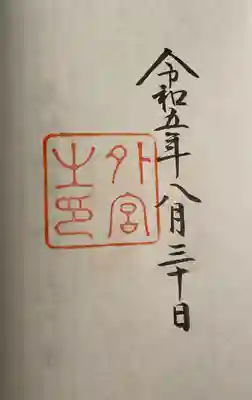 令和五年八月三十日
外宮
之印